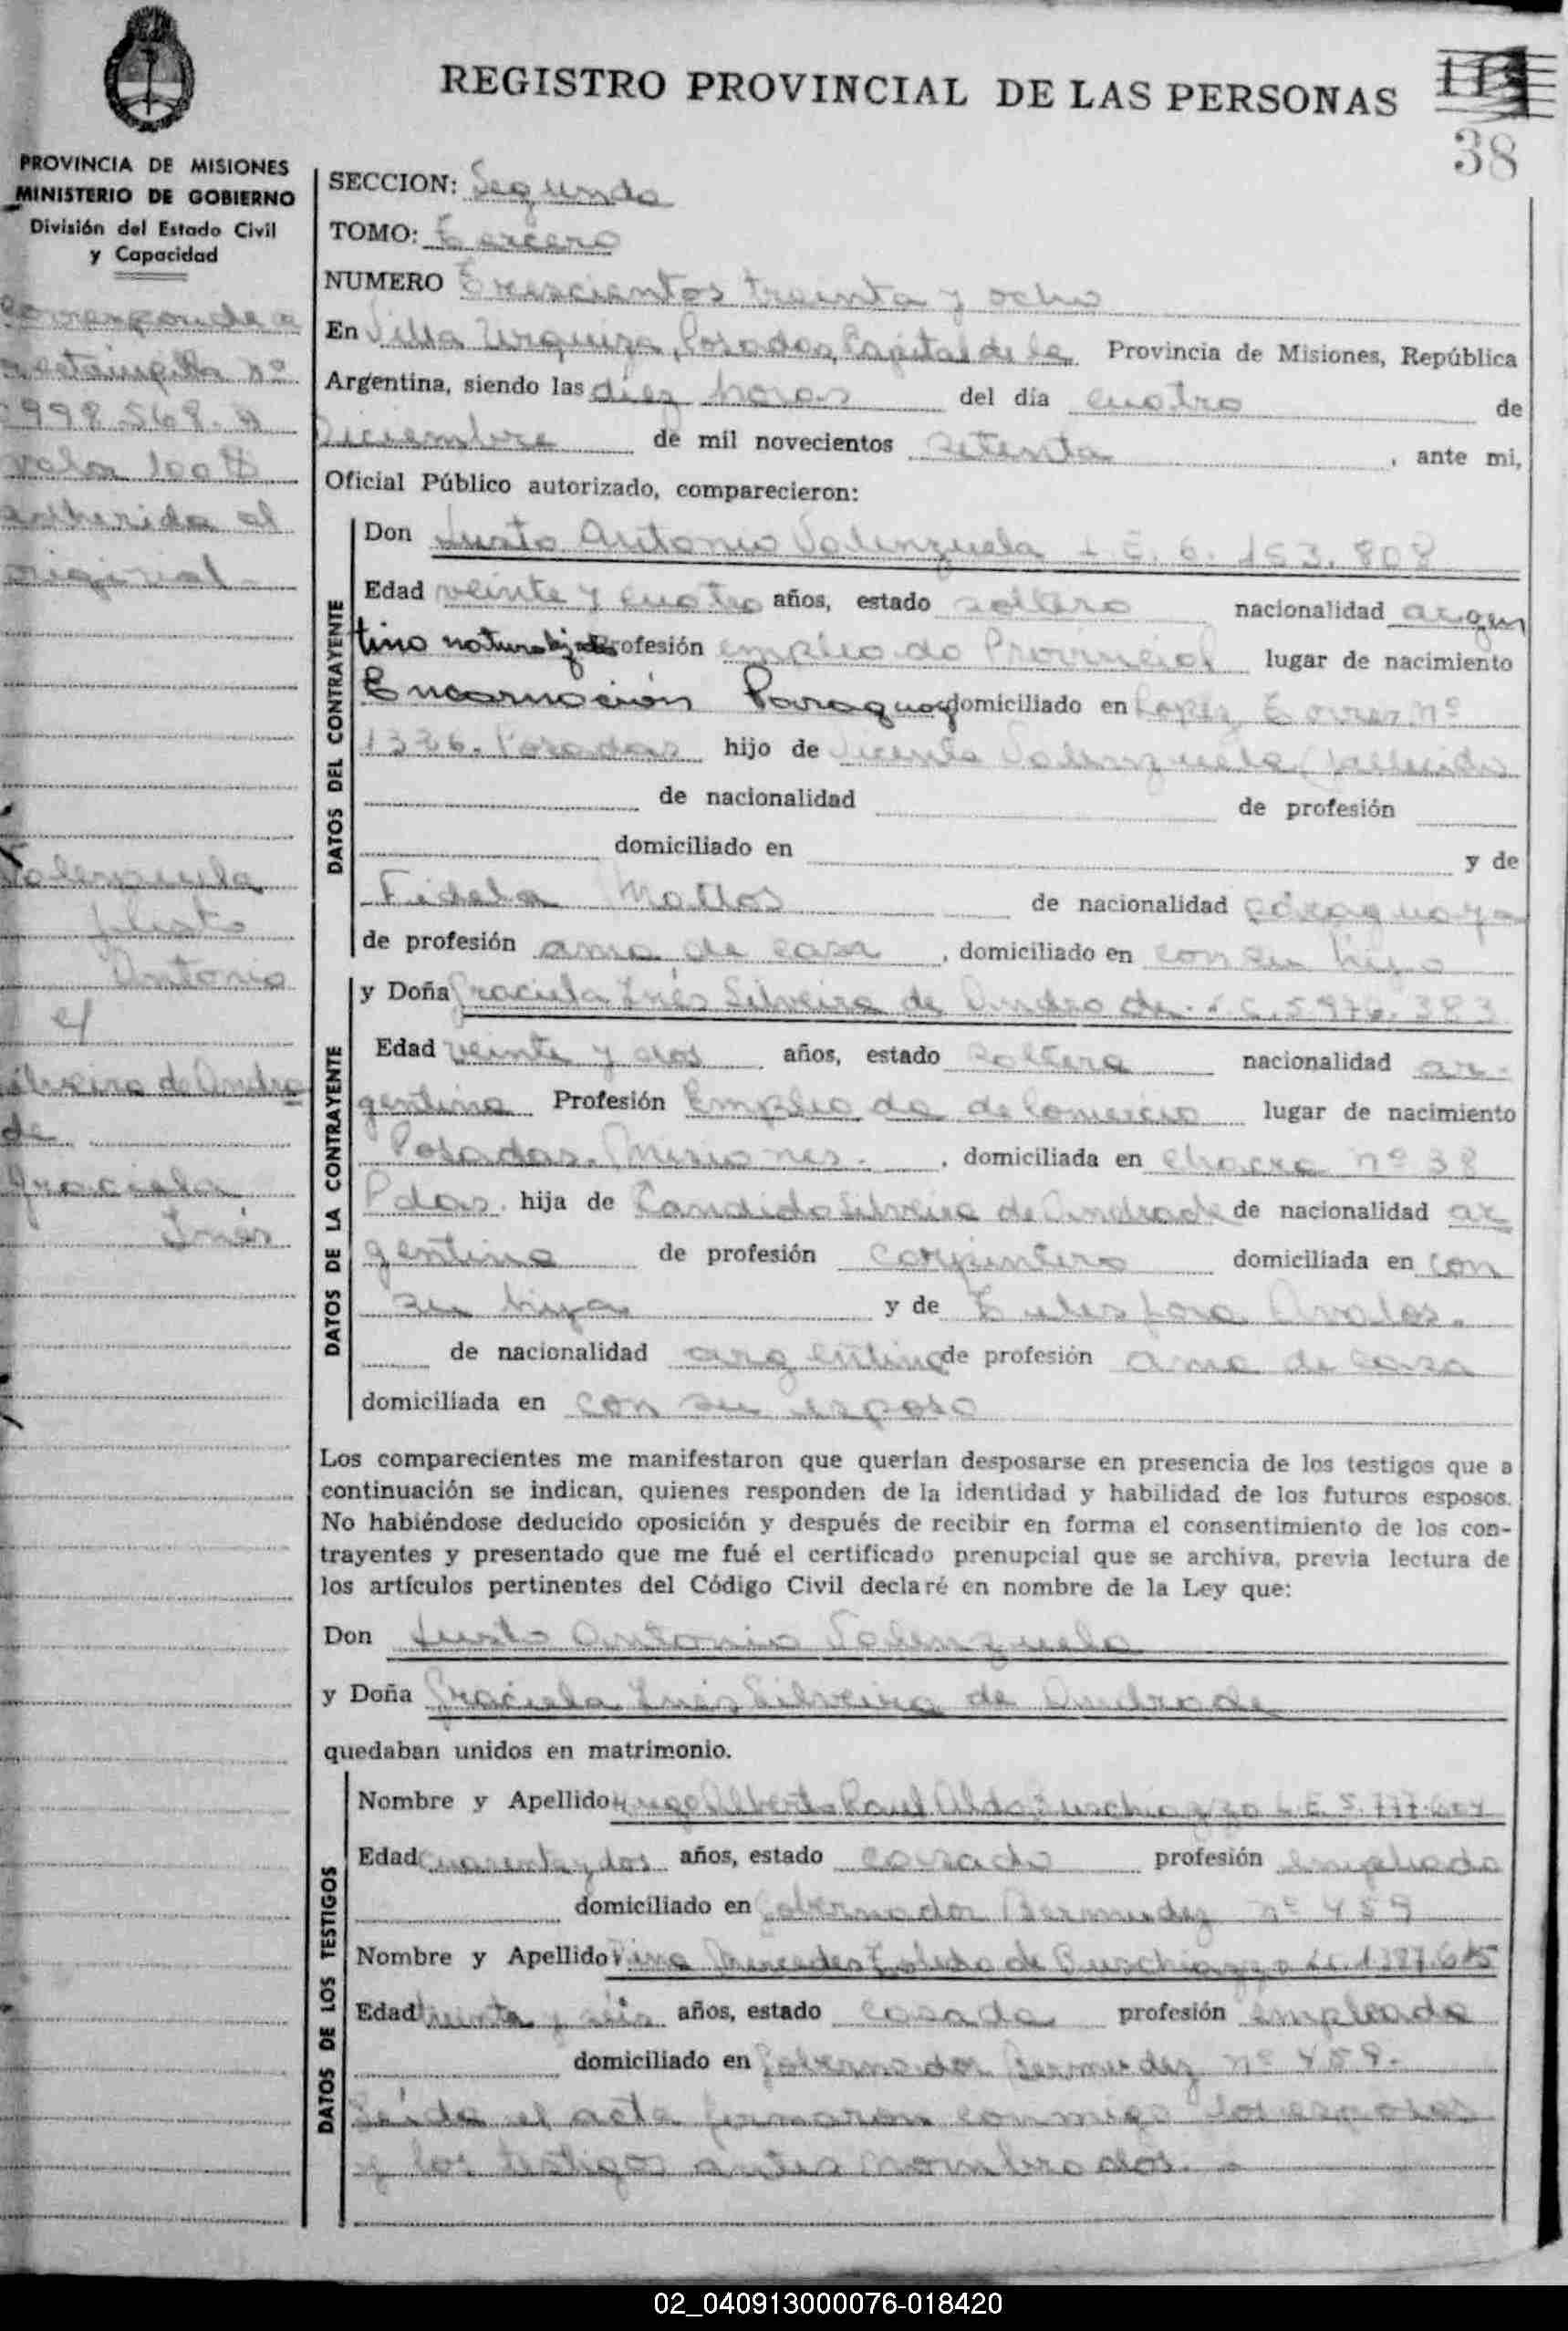 REGISTRO PROVINCIAL DE LAS PERSONAS
38
PROVINCIA DE MISIONES
MINISTERIO DE GOBIERNO
División del Estado Civil
y Capacidad
corresponde a
estampilla nº
998.568. A
valor 100 $
adherida al
original.
Valenzuela
Justo
Antonio
c/
Silveira de Andra
de
Graciela
Inés
SECCION: Segunda
TOMO: Tercero
NUMERO Trescientos treinta y ocho
En Villa Urquiza, Posadas, Capital de la Provincia de Misiones, República
Argentina, siendo las diez horas del día cuatro de
Diciembre de mil novecientos setenta, ante mi,
Oficial Público autorizado, comparecieron:
DATOS DEL CONTRAYENTE
Don Justo Antonio Valenzuela L.E. 6.153.808
Edad veinte y cuatro años, estado soltero nacionalidad argen
tino naturalizado Profesión empleado Provincial lugar de nacimiento
Encarnación Paraguay domiciliado en Lopez Torres nº
1336. Posadas hijo de Vicente Valenzuela (fallecido
de nacionalidad de profesión
domiciliado en y de
Fidela de nacionalidad paraguaya
de profesión ama de casa, domiciliado en con su hijo
DATOS DE LA CONTRAYENTE
y Doña Graciela Inés Silveira de Andrade. L.C. 5.976.383
Edad veinte y dos años, estado soltera nacionalidad ar-
gentina Profesión Empleada de Comercio lugar de nacimiento
Posadas. Misiones., domiciliada en chacra nº 38
Pdas. hija de Candido Silveira de Andrade de nacionalidad ar
gentino de profesión carpintero domiciliada en con
su hija y de Telesfora Avalos.
de nacionalidad argentina de profesión ama de casa
domiciliada en con su esposo
Los comparecientes me manifestaron que querían desposarse en presencia de los testigos que a
continuación se indican, quienes responden de la identidad y habilidad de los futuros esposos.
No habiéndose deducido oposición y después de recibir en forma el consentimiento de los con-
trayentes y presentado que me fué el certificado prenupcial que se archiva, previa lectura de
los artículos pertinentes del Código Civil declaré en nombre de la Ley que:
Don Justo Antonio Valenzuela
y Doña Graciela Inés Silveira de Andrade
quedaban unidos en matrimonio.
DATOS DE LOS TESTIGOS
Nombre y Apellido Hugo Alberto Raul Aldo Buschiazzo L.E.
Edad cuarenta y dos años, estado casado profesión empleado
domiciliado en Gobernador Bermudez nº 459
Nombre y Apellido Mercedes Toledo de Buschiazzo
Edad treinta y seis años, estado casada profesión empleada
domiciliado en Gobernador Bermudez nº 459.
Leída el acta firmaron conmigo los esposos
y los testigos antes nombrados.
02_040913000076-018420